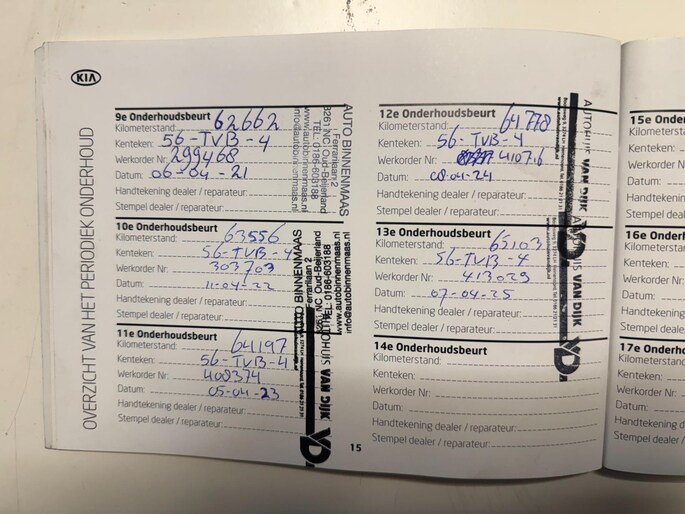 KIA
OVERZICHT VAN HET PERIODIEK ONDERHOUD
9e Onderhoudsbeurt
Kilometerstand: 62662
Kenteken: 56-TVB-4
Werkorder Nr: 299468
Datum: 06-04-21
Handtekening dealer / reparateur:
Stempel dealer / reparateur:
AUTO BINNENMAAS
Ferrarilaan 2
3261 NC Oud-Beijerland
TEL: 0186-603188
www.autobinnenmaas.nl
info@autobinnenmaas.nl
10e Onderhoudsbeurt
Kilometerstand: 63556
Kenteken: 56-TVB-4
Werkorder Nr: 303703
Datum: 11-04-22
Handtekening dealer / reparateur:
Stempel dealer / reparateur:
AUTO BINNENMAAS
Ferrarilaan 2
3261 NC Oud-Beijerland
TEL: 0186-603188
www.autobinnenmaas.nl
info@autobinnenmaas.nl
11e Onderhoudsbeurt
Kilometerstand: 64197
Kenteken: 56-TVB-4
Werkorder Nr: 408374
Datum: 05-04-23
Handtekening dealer / reparateur:
Stempel dealer / reparateur:
VAN DIJK
YD.
15
12e Onderhoudsbeurt
Kilometerstand: 64778
Kenteken: 56-TVB-4
Werkorder Nr: 410716
Datum: 08-04-24
Handtekening dealer / reparateur:
Stempel dealer / reparateur:
AUTOHUIS VAN DIJK
YD.
13e Onderhoudsbeurt
Kilometerstand: 65103
Kenteken: 56-TVB-4
Werkorder Nr: 413029
Datum: 07-04-25
Handtekening dealer / reparateur:
Stempel dealer / reparateur:
VAN DIJK
YD.
14e Onderhoudsbeurt
Kilometerstand:
Kenteken:
Werkorder Nr:
Datum:
Handtekening dealer / reparateur:
Stempel dealer / reparateur:
15e On
Kilometers
Kenteken:
Werkorder
Datum:
Handteken
Stempel de
16e Onde
Kilometerst
Kenteken:
Werkorder N
Datum:
Handtekenin
Stempel deal
17e Onderho
Kilometerstan
Kenteken:
Werkorder Nr:
Datum:
Handtekening d
Stempel dealer /